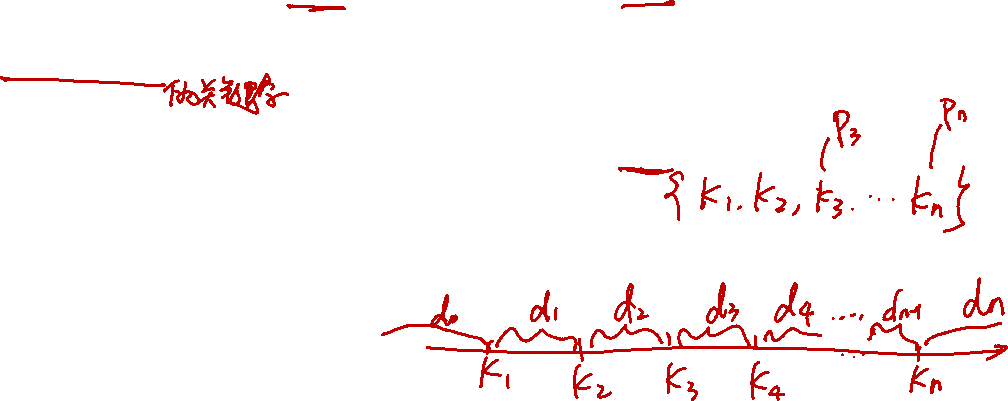 的关键字
P3 Pn
{ K1, K2, K3, ... Kn }
d0 d1 d2 d3 d4 .... dn-1 dn
K1 K2 K3 K4 ... Kn